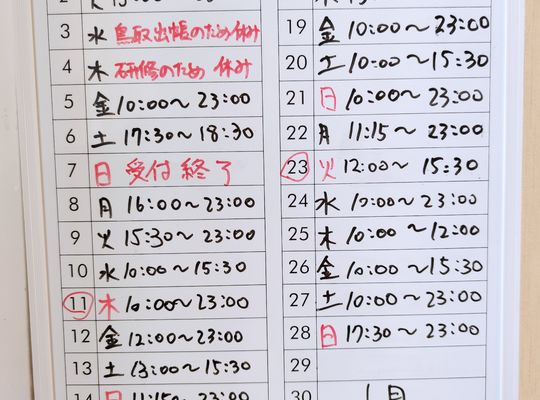 3 水 鳥取出帳のため休み
4 木 研修のため 休み
5 金 10:00〜23:00
6 土 17:30〜18:30
7 日 受付 終了
8 月 16:00〜23:00
9 火 15:30〜23:00
10 水 10:00〜15:30
11 木 10:00〜23:00
12 金 12:00〜23:00
13 土 13:00〜15:30
14 日 11:15〜23:00
19 金 10:00〜23:00
20 土 10:00〜15:30
21 日 10:00〜23:00
22 月 11:15〜23:00
23 火 12:00〜15:30
24 水 10:00〜23:00
25 木 10:00〜12:00
26 金 10:00〜15:30
27 土 10:00〜23:00
28 日 17:30〜23:00
29
30 1月